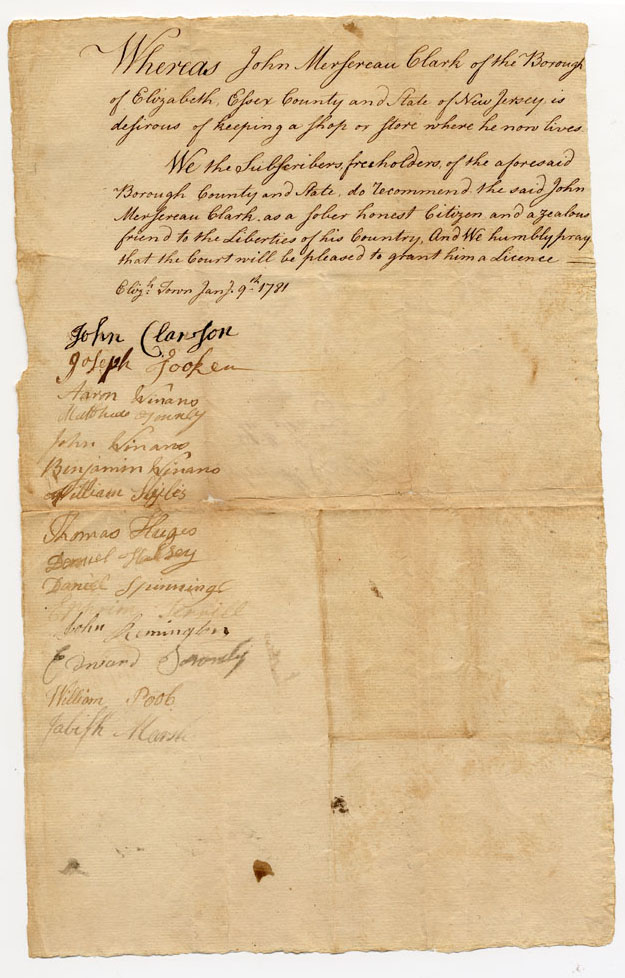 Whereas John Merſereau Clark of the Borough
of Elizabeth, Eſsex County and State of New Jersey, is
desirous of keeping a Shop or Store where he now lives.
We the Subſcribers, freeholders, of the aforesaid
Borough County and State, do recommend the said John
Merſereau Clark, as a sober honest Citizen and a zealous
friend to the Liberties of his Country, And We humbly pray
that the Court will be pleased to grant him a Licence
Elizh. Town Jany. 9th 1781
John Clawson
Joseph Tooker
Aaron Winans
Matthias
John Winans
Benjamin Winans
William
Thomas
Daniel Halsey
Daniel Spinning
John Remington
Edward
William Poob
Marsh